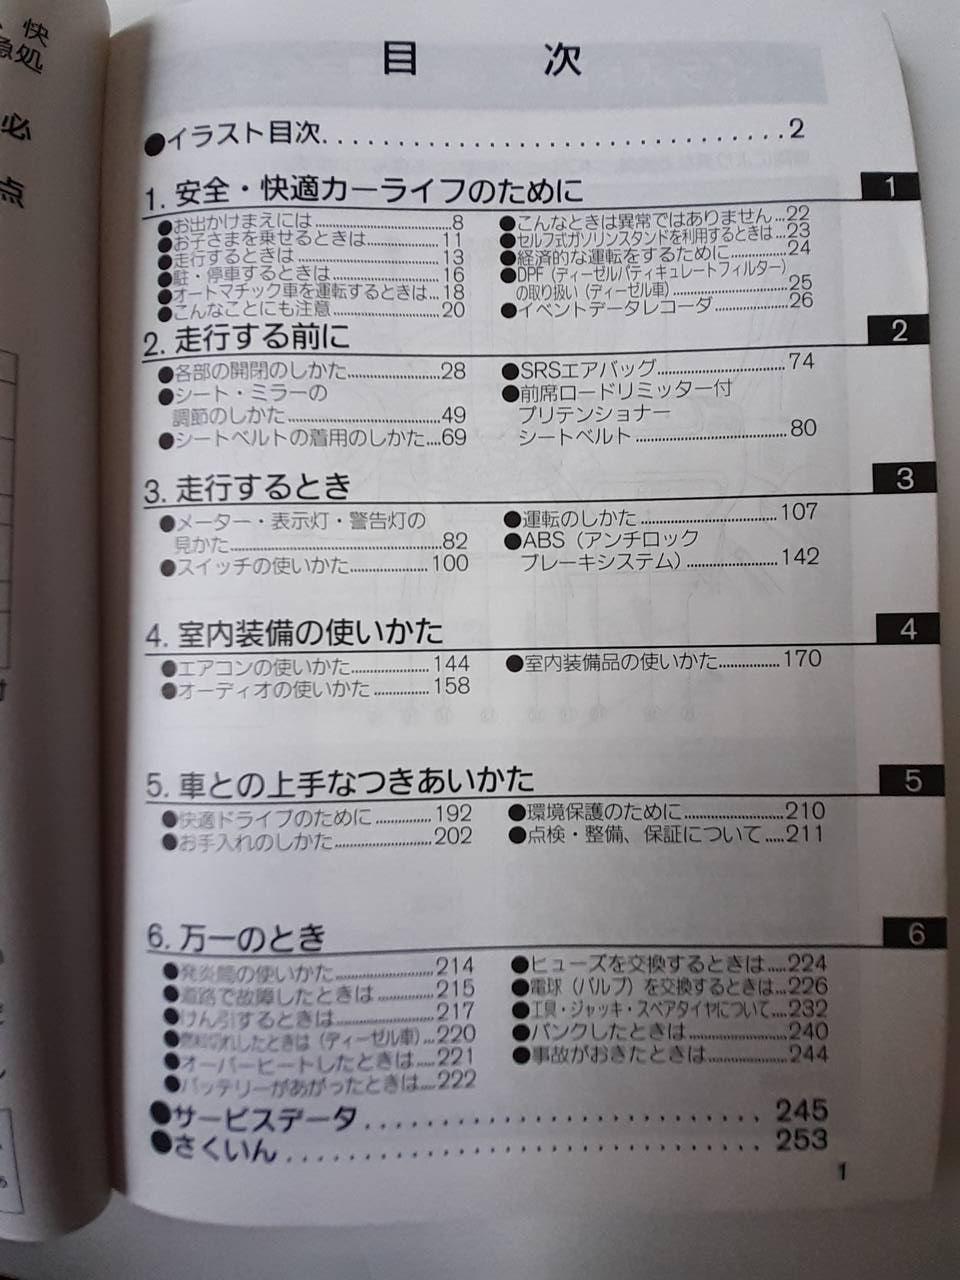 快
急処
必
点
目 次
●イラスト目次..............................2
1. 安全・快適カーライフのために
1
●お出かけまえには..............................8
●お子さまを乗せるときは..................11
●走行するときは..............................13
●駐・停車するときは........................16
●オートマチック車を運転するときは...18
●こんなことにも注意........................20
●こんなときは異常ではありません...22
●セルフ式ガソリンスタンドを利用するときは...23
●経済的な運転をするために..............24
●DPF（ディーゼルパティキュレートフィルター）
の取り扱い（ディーゼル車）..............25
●イベントデータレコーダ..................26
2. 走行する前に
2
●各部の開閉のしかた........................28
●シート・ミラーの
調節のしかた....................................49
●シートベルトの着用のしかた....69
●SRSエアバッグ..............................74
●前席ロードリミッター付
プリテンショナー
シートベルト....................................80
3. 走行するとき
3
●メーター・表示灯・警告灯の
見かた..............................................82
●スイッチの使いかた....................100
●運転のしかた..............................107
●ABS（アンチロック
ブレーキシステム）......................142
4. 室内装備の使いかた
4
●エアコンの使いかた....................144
●オーディオの使いかた..............158
●室内装備品の使いかた...............170
5. 車との上手なつきあいかた
5
●快適ドライブのために..............192
●お手入れのしかた......................202
●環境保護のために......................210
●点検・整備、保証について.....211
6. 万一のとき
6
●発炎筒の使いかた......................214
●道路で故障したときは..............215
●けん引するときは......................217
●燃料切れしたときは（ディーゼル車）...220
●オーバーヒートしたときは....221
●バッテリーがあがったときは....222
●ヒューズを交換するときは.....224
●電球（バルブ）を交換するときは...226
●工具・ジャッキ・スペアタイヤについて....232
●パンクしたときは......................240
●事故がおきたときは..................244
●サービスデータ..............................245
●さくいん..............................253
1